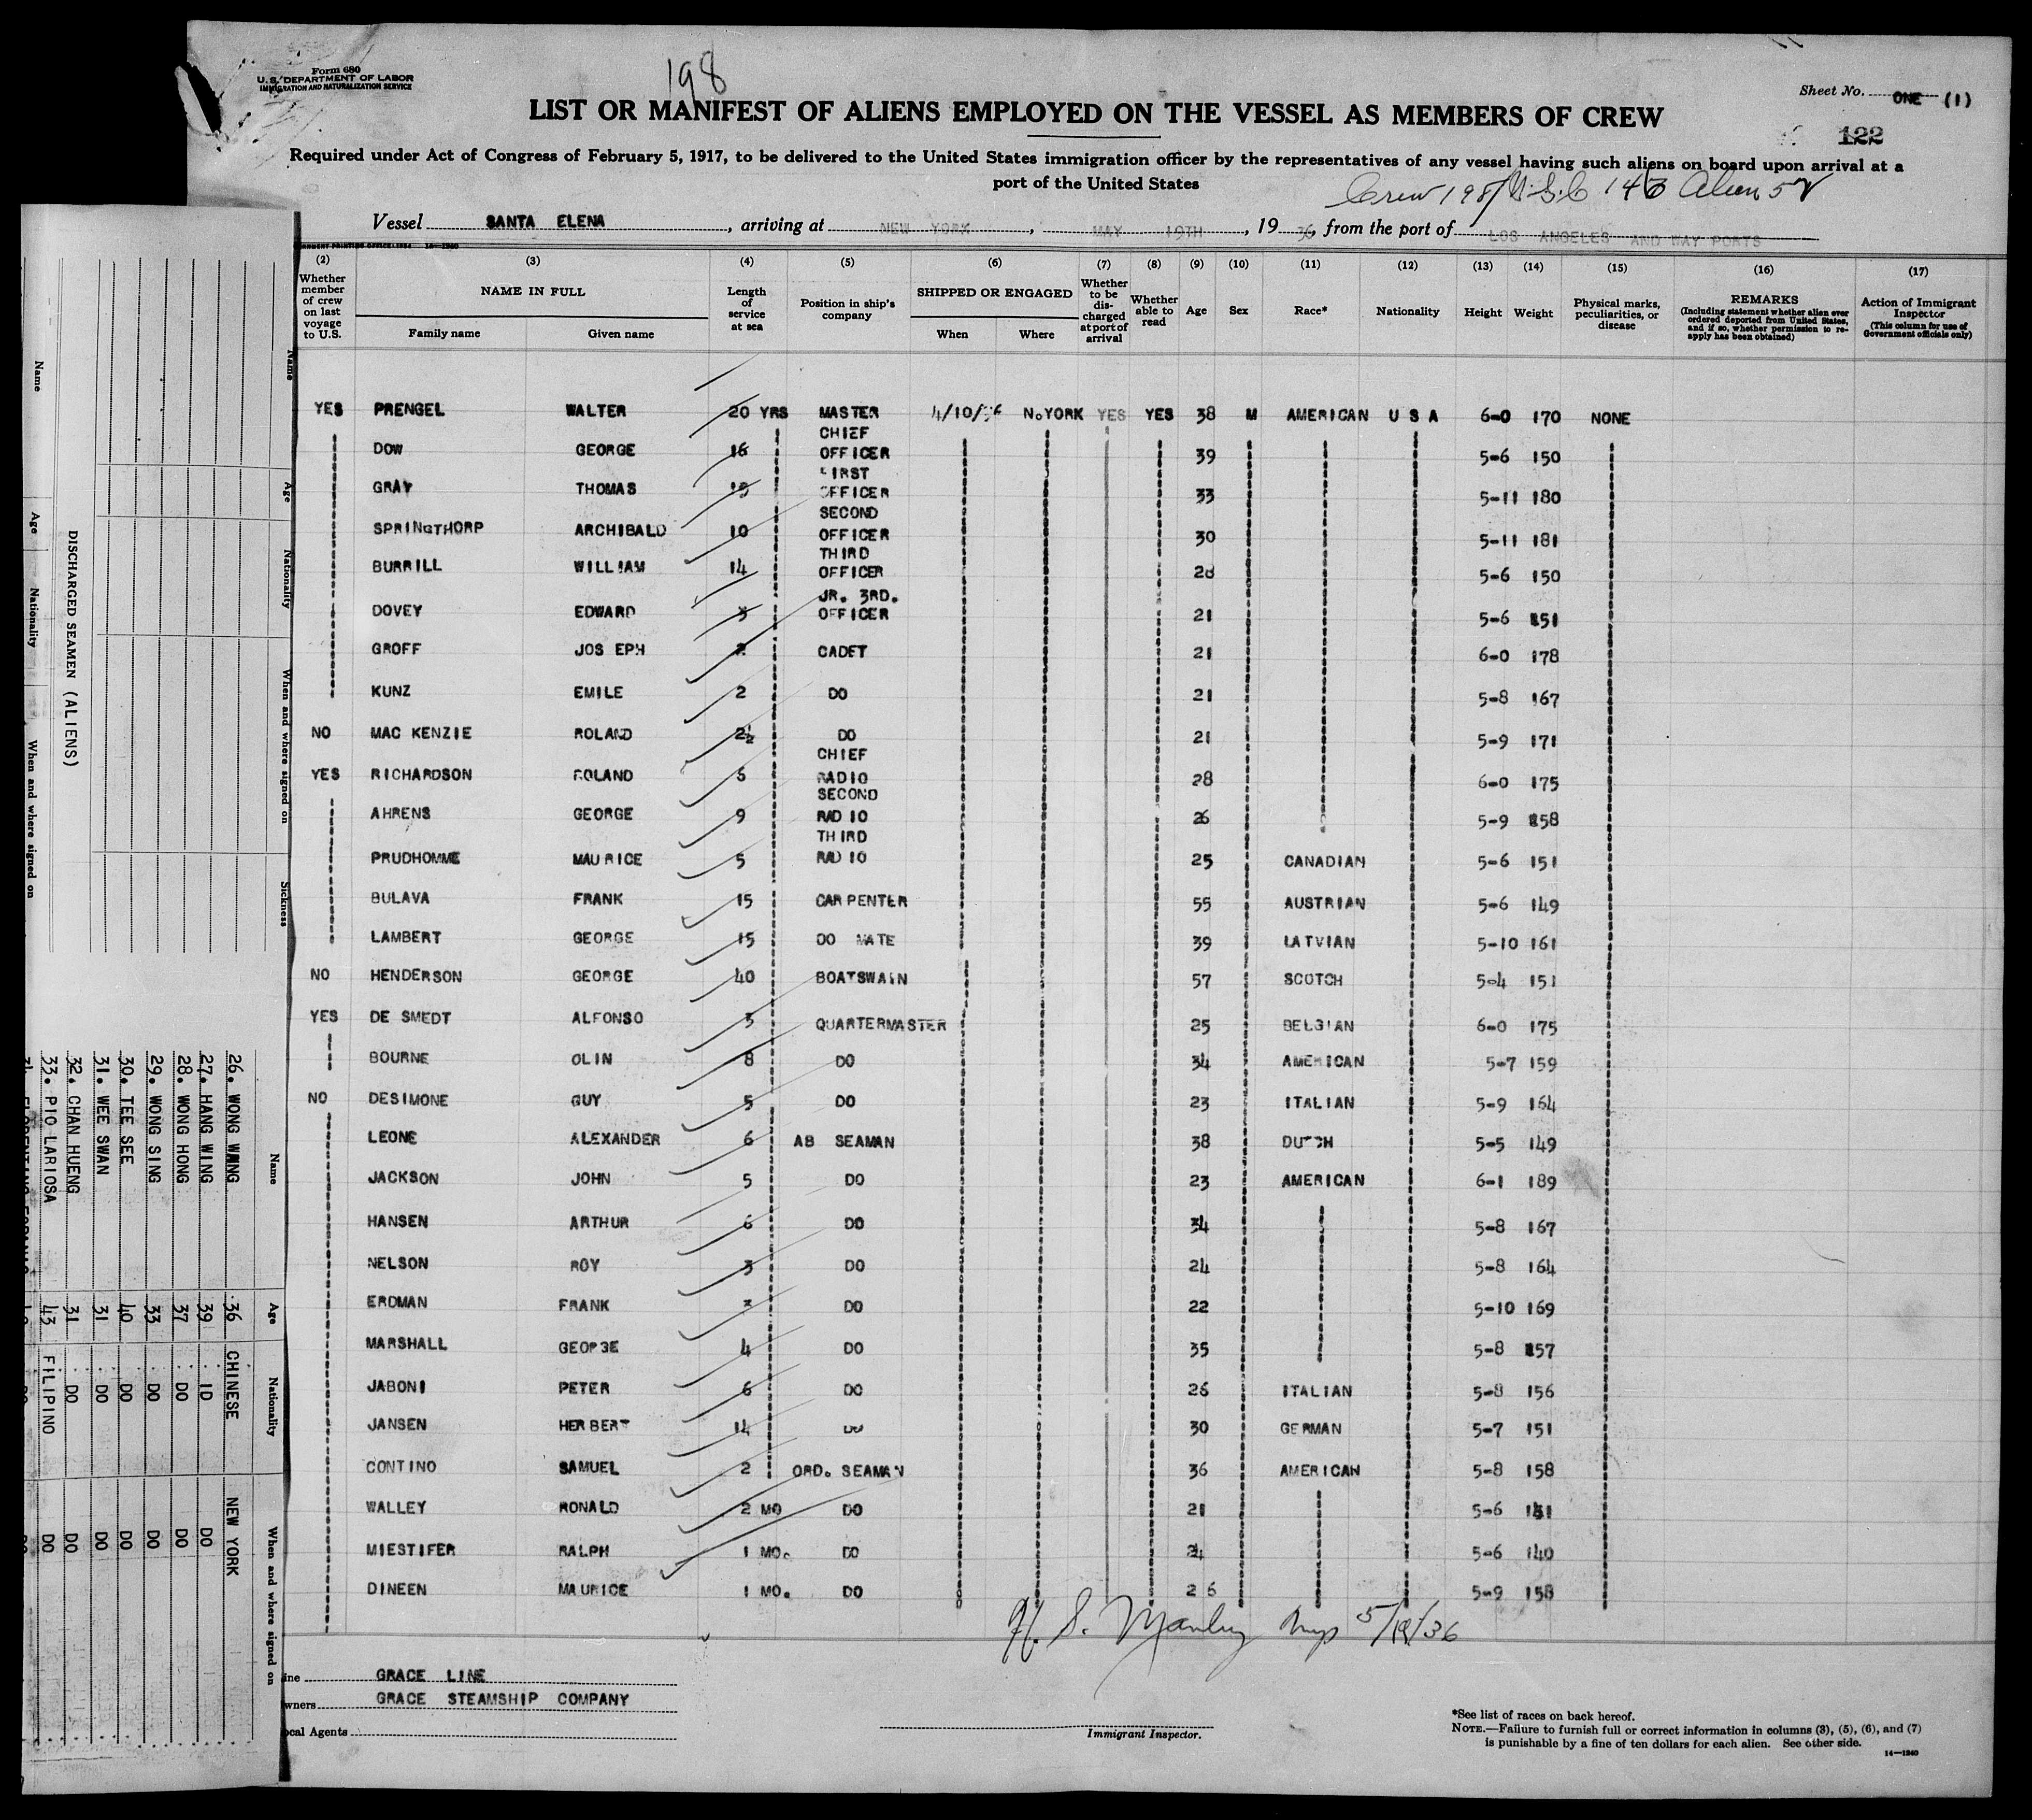 Form 680
U. S. DEPARTMENT OF LABOR
IMMIGRATION AND NATURALIZATION SERVICE
198
Sheet No. ONE (1)
LIST OR MANIFEST OF ALIENS EMPLOYED ON THE VESSEL AS MEMBERS OF CREW
122
Required under Act of Congress of February 5, 1917, to be delivered to the United States immigration officer by the representatives of any vessel having such aliens on board upon arrival at a
port of the United States
Crew 198/U.S.C 146 Alien 52
Vessel SANTA ELENA, arriving at NEW YORK, MAY 19TH, 19 36, from the port of LOS ANGELES AND WAY PORTS
(2) (3) (4) (5) (6) (7) (8) (9) (10) (11) (12) (13) (14) (15) (16) (17)
Whether member of crew on last voyage to U.S.
NAME IN FULL
Family name
Given name
Length of service at sea
Position in ship's company
SHIPPED OR ENGAGED
When
Where
Whether to be discharged at port of arrival
Whether able to read
Age
Sex
Race*
Nationality
Height
Weight
Physical marks, peculiarities, or disease
REMARKS
(Including statement whether alien ever ordered deported from United States, and if so, whether permission to reapply has been obtained)
Action of Immigrant Inspector
(This column for use of Government officials only)
YES PRENGEL WALTER 20 YRS MASTER 4/10/36 N.YORK YES YES 38 M AMERICAN U S A 6-0 170 NONE
DOW GEORGE 16 CHIEF OFFICER 39 5-6 150
GRAY THOMAS FIRST OFFICER 33 5-11 180
SPRINGTHORP ARCHIBALD 10 SECOND OFFICER 30 5-11 181
BURRILL WILLIAM 14 THIRD OFFICER 28 5-6 150
DOVEY EDWARD 3 JR. 3RD. OFFICER 21 5-6 151
GROFF JOSEPH 2 CADET 21 6-0 178
KUNZ EMILE 2 DO 21 5-8 167
NO MAC KENZIE ROLAND 2½ DO 21 5-9 171
YES RICHARDSON ROLAND 5 CHIEF RADIO 28 6-0 175
AHRENS GEORGE 9 SECOND RADIO 26 5-9 158
PRUDHOMME MAURICE 5 THIRD RADIO 25 CANADIAN 5-6 151
BULAVA FRANK 15 CARPENTER 55 AUSTRIAN 5-6 149
LAMBERT GEORGE 15 DO MATE 39 LATVIAN 5-10 161
NO HENDERSON GEORGE 40 BOATSWAIN 57 SCOTCH 5-4 151
YES DE SMEDT ALFONSO 3 QUARTERMASTER 25 BELGIAN 6-0 175
BOURNE OLIN 8 DO 34 AMERICAN 5-7 159
NO DESIMONE GUY 5 DO 23 ITALIAN 5-9 164
LEONE ALEXANDER 6 AB SEAMAN 38 DUTCH 5-5 149
JACKSON JOHN 5 DO 23 AMERICAN 6-1 189
HANSEN ARTHUR 6 DO 34 5-8 167
NELSON ROY 3 DO 24 5-8 164
ERDMAN FRANK DO 22 5-10 169
MARSHALL GEORGE 4 DO 35 5-8 157
JABONI PETER 6 DO 26 ITALIAN 5-8 156
JANSEN HERBERT 14 DO 30 GERMAN 5-7 151
CONTINO SAMUEL 2 ORD. SEAMAN 36 AMERICAN 5-8 158
WALLEY RONALD 2 MO DO 21 5-6
MIESTIFER RALPH 1 MO. DO 24 5-6 140
DINEEN MAURICE 1 MO. DO 26 5-9 158
H. S. Manley Insp 5/19/36
ine GRACE LINE
wners GRACE STEAMSHIP COMPANY
ocal Agents
Immigrant Inspector.
*See list of races on back hereof.
NOTE.—Failure to furnish full or correct information in columns (3), (5), (6), and (7)
is punishable by a fine of ten dollars for each alien. See other side.
14—1240
DISCHARGED SEAMEN (ALIENS)
Name Age Nationality When and where signed on
Name Age Nationality When and where signed on Sickness
Name Age Nationality When and where signed on
26. WONG WANG 36 CHINESE NEW YORK
27. HANG WING 39 DO DO
28. WONG HONG 37 DO DO
29. WONG SING 33 DO DO
30. TEE SEE 40 DO DO
31. WEE SWAN 31 DO DO
32. CHAN HUENG 31 DO DO
33. PIO LARIOSA 43 FILIPINO DO